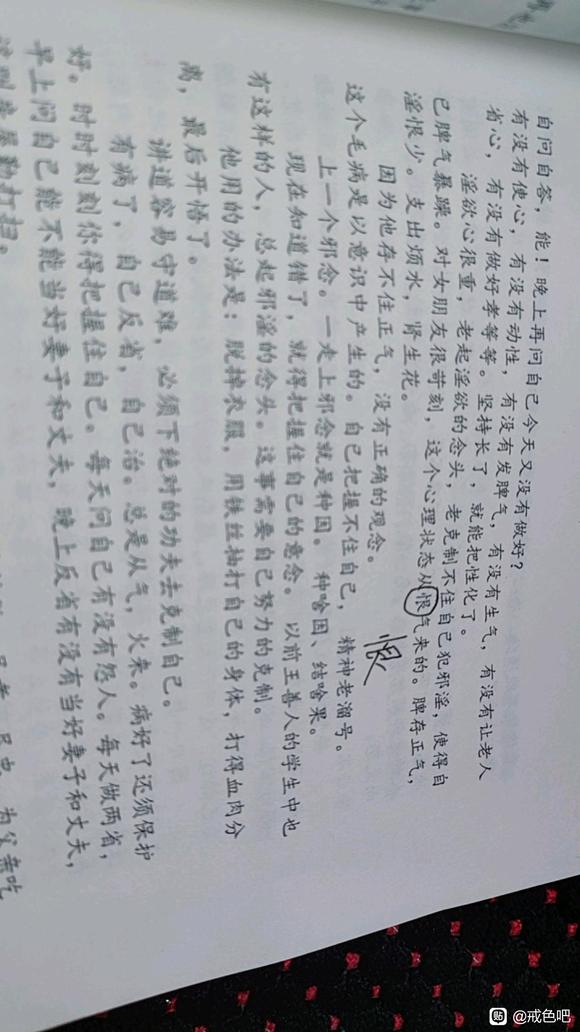 自问自答，能！晚上再问自己今天又没有做好？
有没有使心，有没有动性，有没有发脾气，有没有生气，有没有让老人
省心，有没有做好孝等等。坚持长了，就能把性化了。
淫欲心很重，老起淫欲的念头，老克制不住自己犯邪淫，使得自
己脾气暴躁。对女朋友很苛刻，这个心理状态从恨气来的。脾存正气，
淫恨少。支出烦水，肾生花。
恨
因为他存不住正气，没有正确的观念。
这个毛病是以意识中产生的。自己把握不住自己，精神老溜号。
上一个邪念。一走上邪念就是种因。种啥因、结啥果。
现在知道错了，就得把握住自己的意念。以前王善人的学生中也
有这样的人，总起邪淫的念头。这事需要自己努力的克制。
他用的办法是：脱掉衣服，用铁丝抽打自己的身体，打得血肉分
离，最后开悟了。
讲道容易守道难，必须下绝对的功夫去克制自己。
有病了，自己反省，自己治。总是从气，火来。病好了还须保护
好。时时刻刻你得把握住自己。每天问自己有没有怨人。每天做两省，
早上问自己能不能当好妻子和丈夫，晚上反省有没有当好妻子和丈夫，
勤打扫。
为父亲吃
贴 @戒色吧